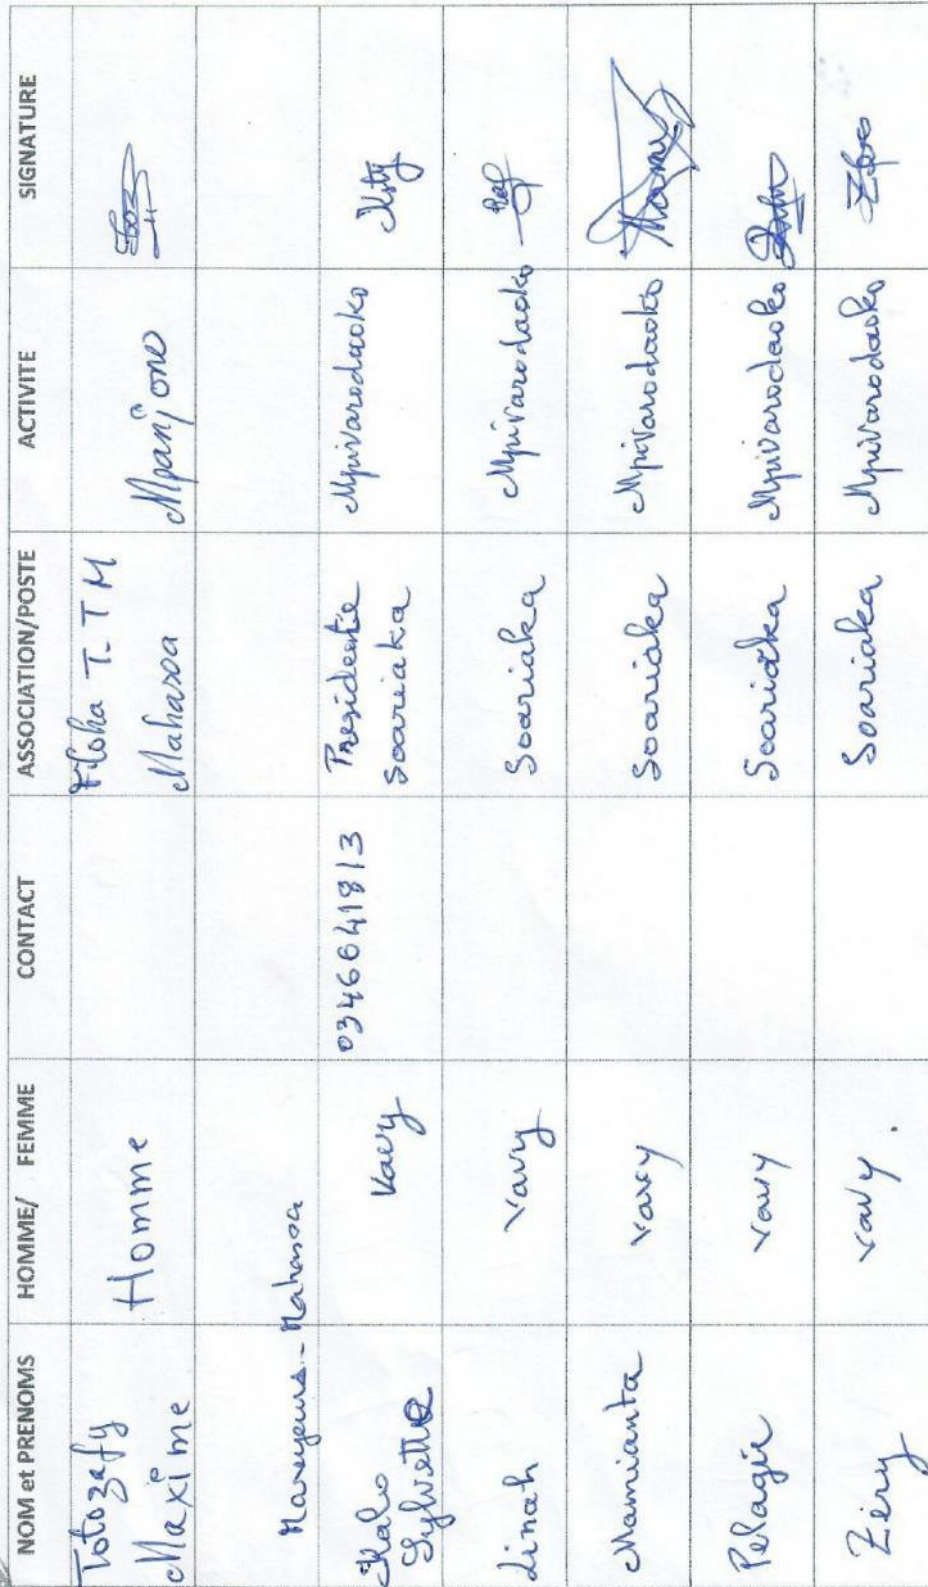 NOM et PRENOMS HOMME/ FEMME CONTACT ASSOCIATION/POSTE ACTIVITE SIGNATURE
Totozafy
Maxime
Homme
Filoha T.T M
Mahasoa
Mpanjono
Mareyeurs - Mahasoa
Kalo
Sylvette
Vavy
0346641813
Presidente
Soariaka
Mpivarodaoko
Linah
Vavy
Soariaka
Mpivarodaoko
Mamianta
Vavy
Soariaka
Mpivarodaoko
Pelagie
Vavy
Soariaka
Mpivarodaoko
Zéry
Vavy
Soariaka
Mpivarodaoko